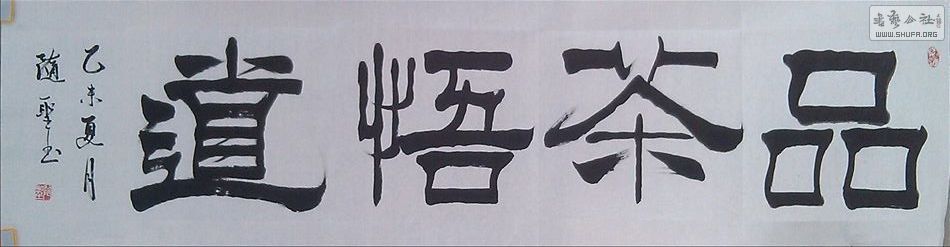 品茶悟道
乙未夏月
随聖玉
書藝公社
WWW.SHUFA.ORG